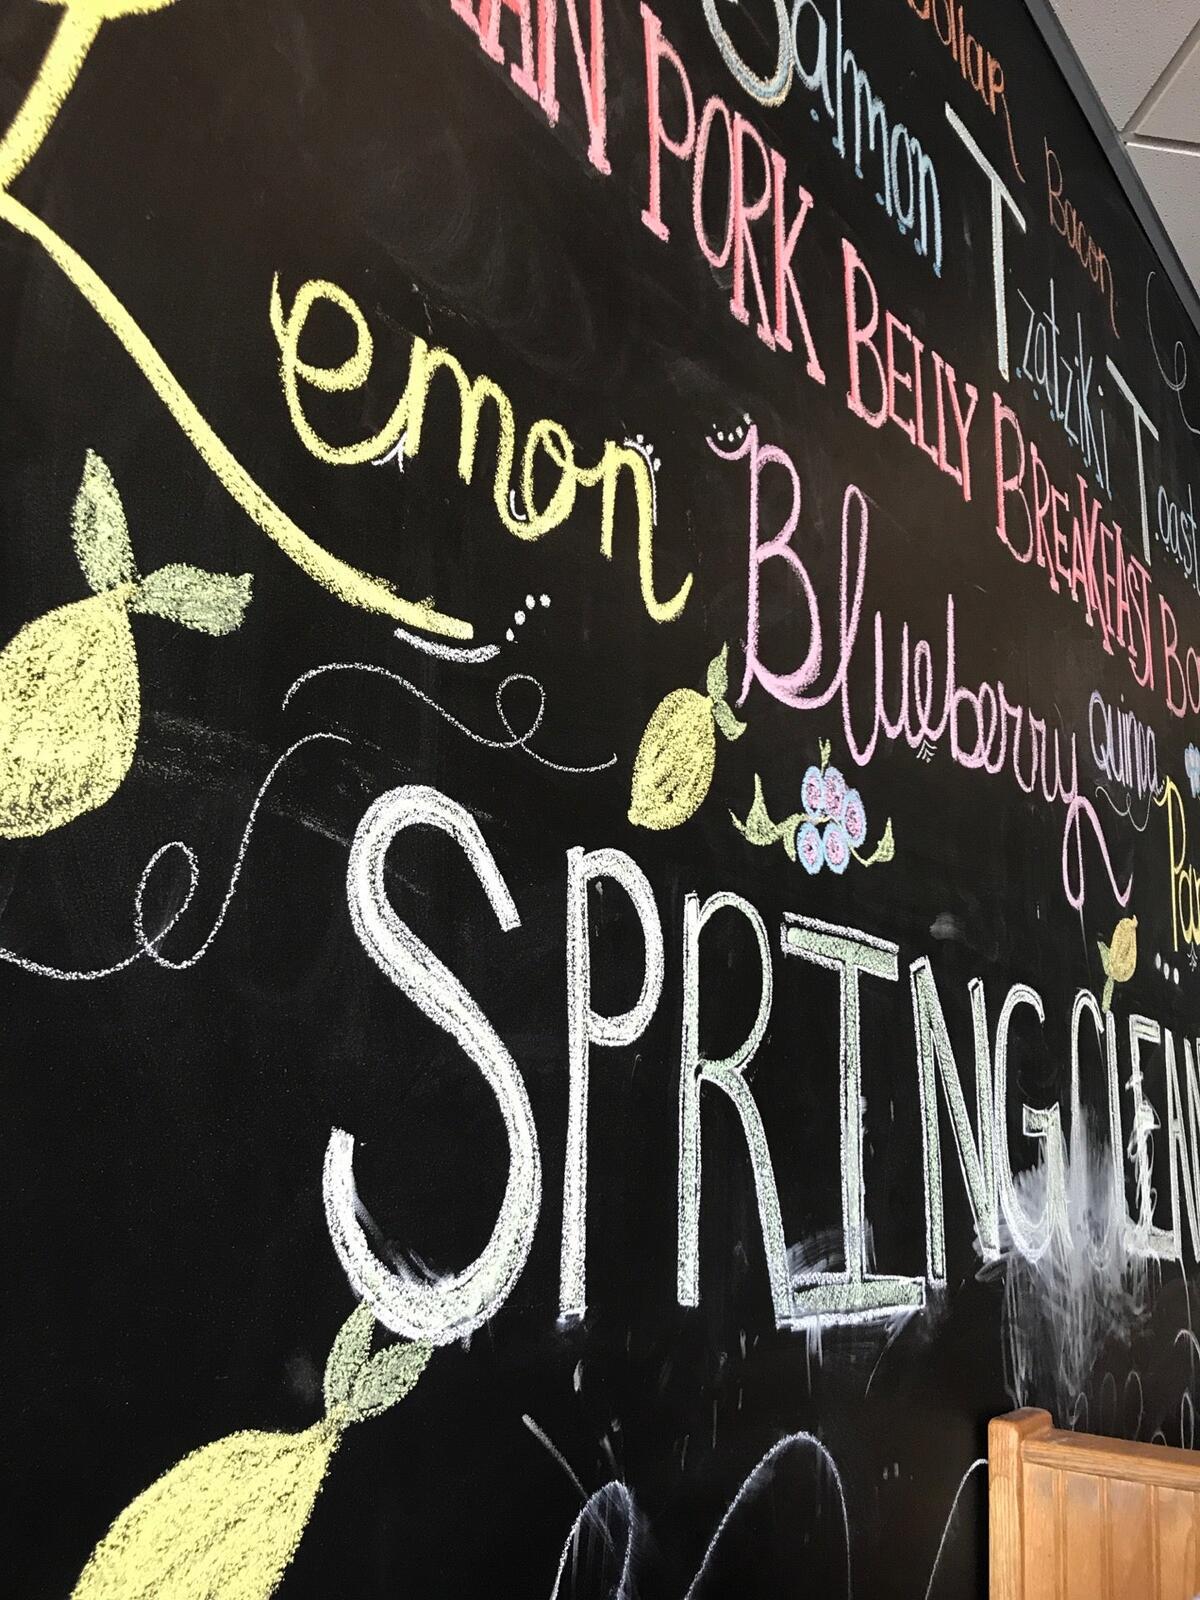 Bacon
Salmon Tzatziki Toast
PORK BELLY BREAKFAST
Lemon Blueberry quinoa
SPRING CLEAN